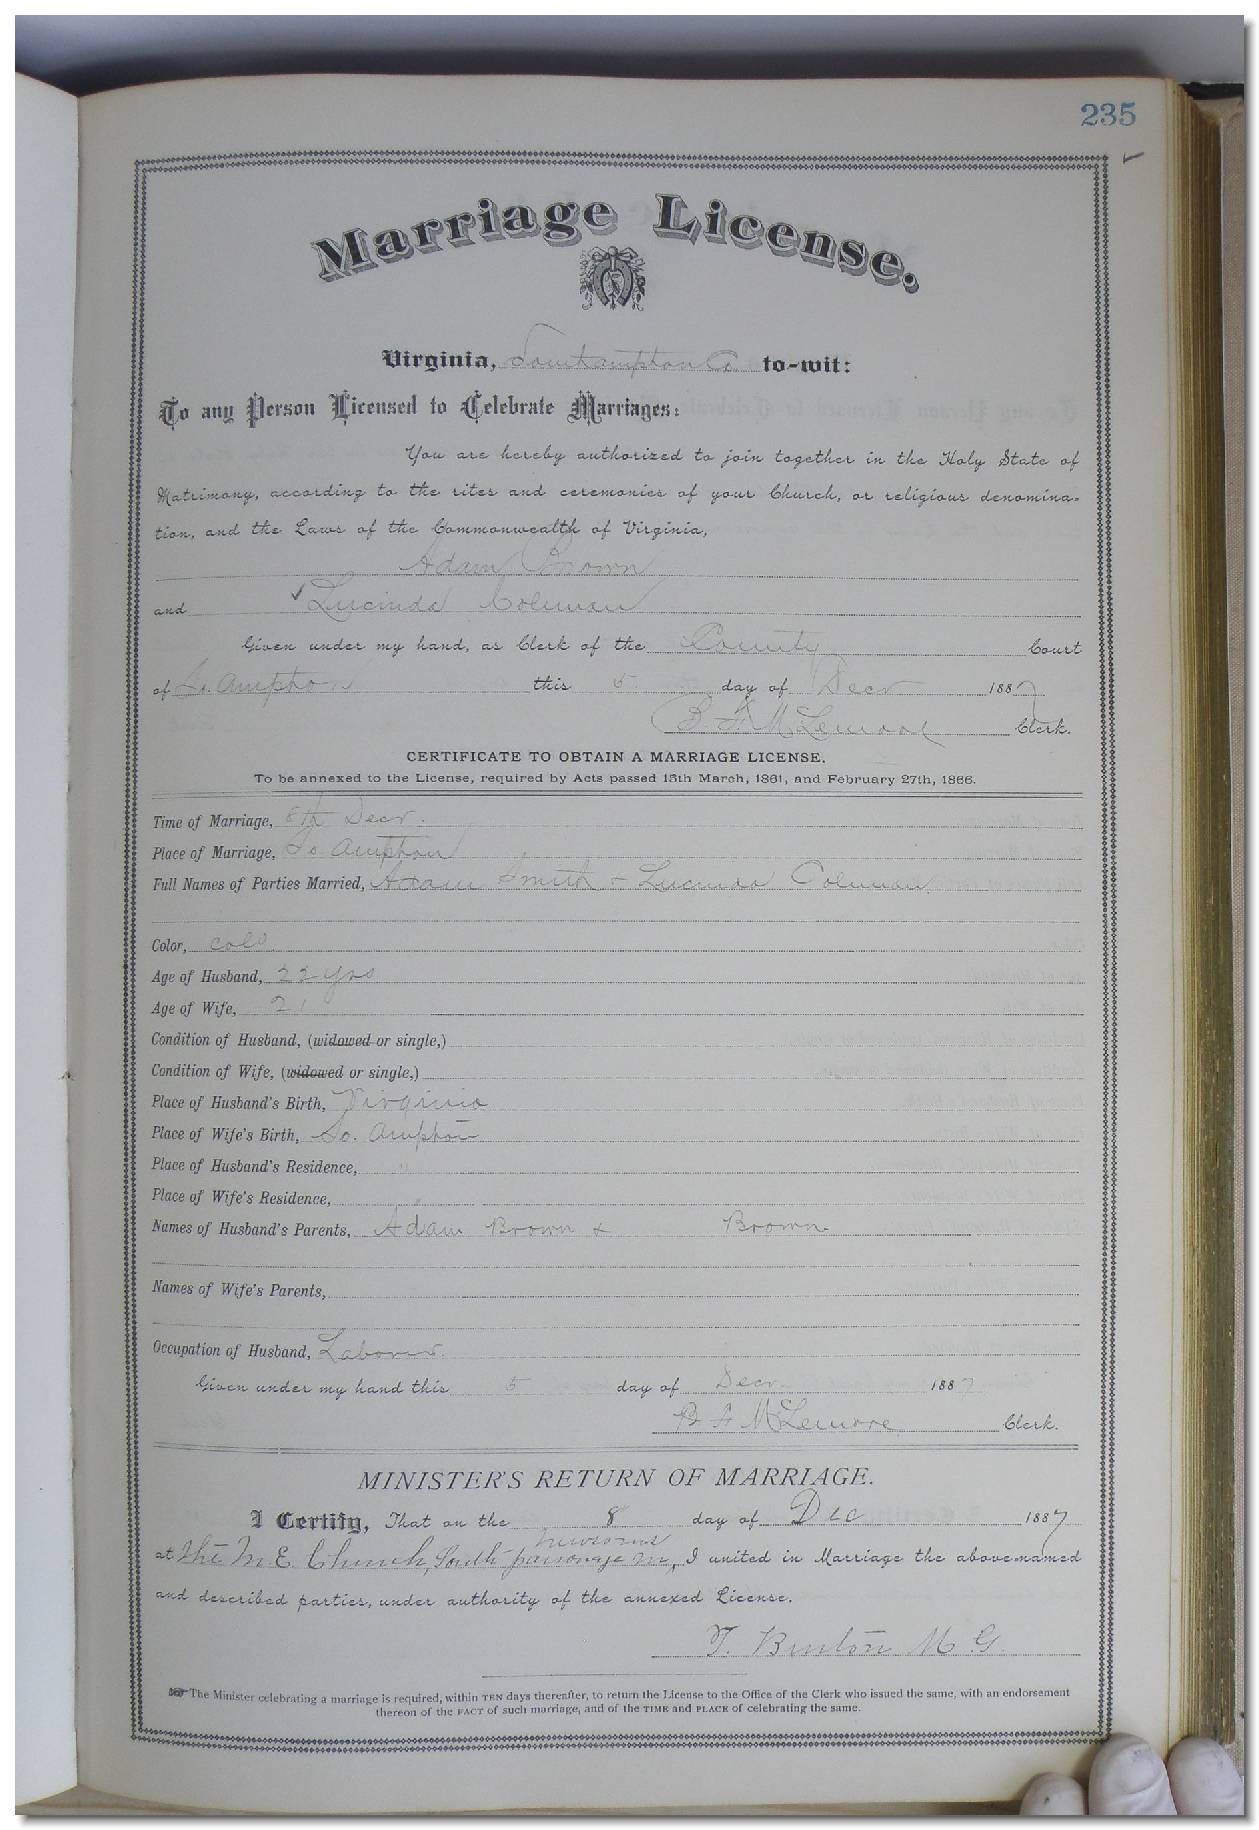 235
Marriage License.
Virginia, Southampton Co to-wit:
To any Person Licensed to Celebrate Marriages:
You are hereby authorized to join together in the Holy State of
Matrimony, according to the rites and ceremonies of your Church, or religious denomina-
tion, and the Laws of the Commonwealth of Virginia,
Adam Brown
and Lucinda Coleman
Given under my hand, as Clerk of the County Court
of So. Ampton this 5 day of Decr 1887
B. F. McLemore Clerk.
CERTIFICATE TO OBTAIN A MARRIAGE LICENSE.
To be annexed to the License, required by Acts passed 15th March, 1861, and February 27th, 1866.
Time of Marriage, 8th Decr.
Place of Marriage, So Ampton
Full Names of Parties Married, Adam Smith & Lucinda Coleman
Color, cold
Age of Husband, 22 yrs
Age of Wife, 21
Condition of Husband, (widowed or single,)
Condition of Wife, (widowed or single,)
Place of Husband's Birth, Virginia
Place of Wife's Birth, So. Ampton
Place of Husband's Residence, "
Place of Wife's Residence, "
Names of Husband's Parents, Adam Brown & Brown
Names of Wife's Parents,
Occupation of Husband, Laborer.
Given under my hand this 5 day of Decr 1887
B F McLemore Clerk.
MINISTER'S RETURN OF MARRIAGE.
I Certify, That on the 8 day of Dec 1887
Newsoms
at the M.E. Church, South parsonage in, I united in Marriage the above-named
and described parties, under authority of the annexed License.
M G
The Minister celebrating a marriage is required, within TEN days thereafter, to return the License to the Office of the Clerk who issued the same, with an endorsement
thereon of the FACT of such marriage, and of the TIME and PLACE of celebrating the same.